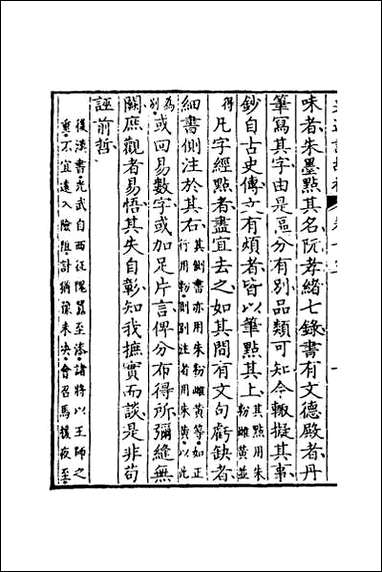 味者朱墨點其名阮孝緒七錄書有文德殿者丹
筆寫其字由是區分有別品類可知今輙擬其事
鈔自古史傳文有煩者皆以筆點其上其點用朱粉雌黃並
得凡字經點者盡宜去之如其間有文句虧缺者
細書側注於其右其側書亦用朱粉雌黃等如正行用粉則側注者用朱以此
為别或回易數字或加足片言俾分布得所彌縫無
闕庶觀者易悟其失自彰知我摭實而談是非苟
誣前哲
後漢書光武自西征隗囂至漆諸將以王師之
重不宜遠入險阻計猶豫未決會召馬援夜至